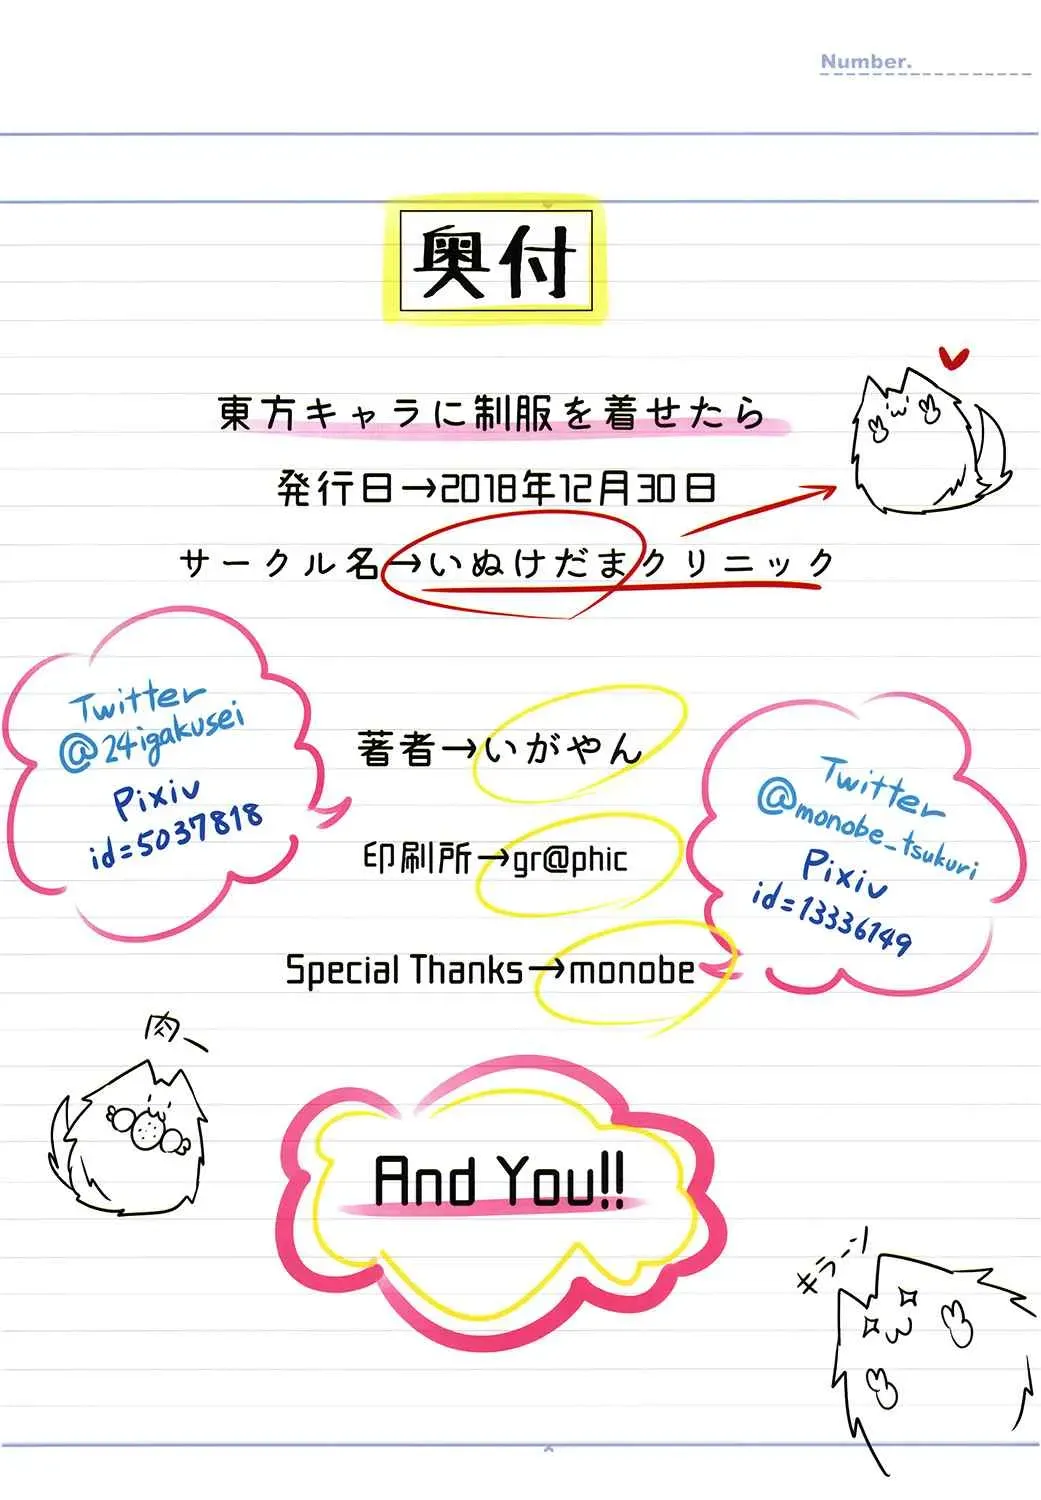 Number.
奥付
東方キャラに制服を着せたら
発行日→2018年12月30日
サークル名→いぬけだまクリニック
Twitter
@24igakusei
Pixiv
id=5037818
著者→いがやん
Twitter
@monobe_tsukuri
Pixiv
id=13336149
印刷所→gr@phic
Special Thanks→monobe
肉ー
And You!!
キラーン